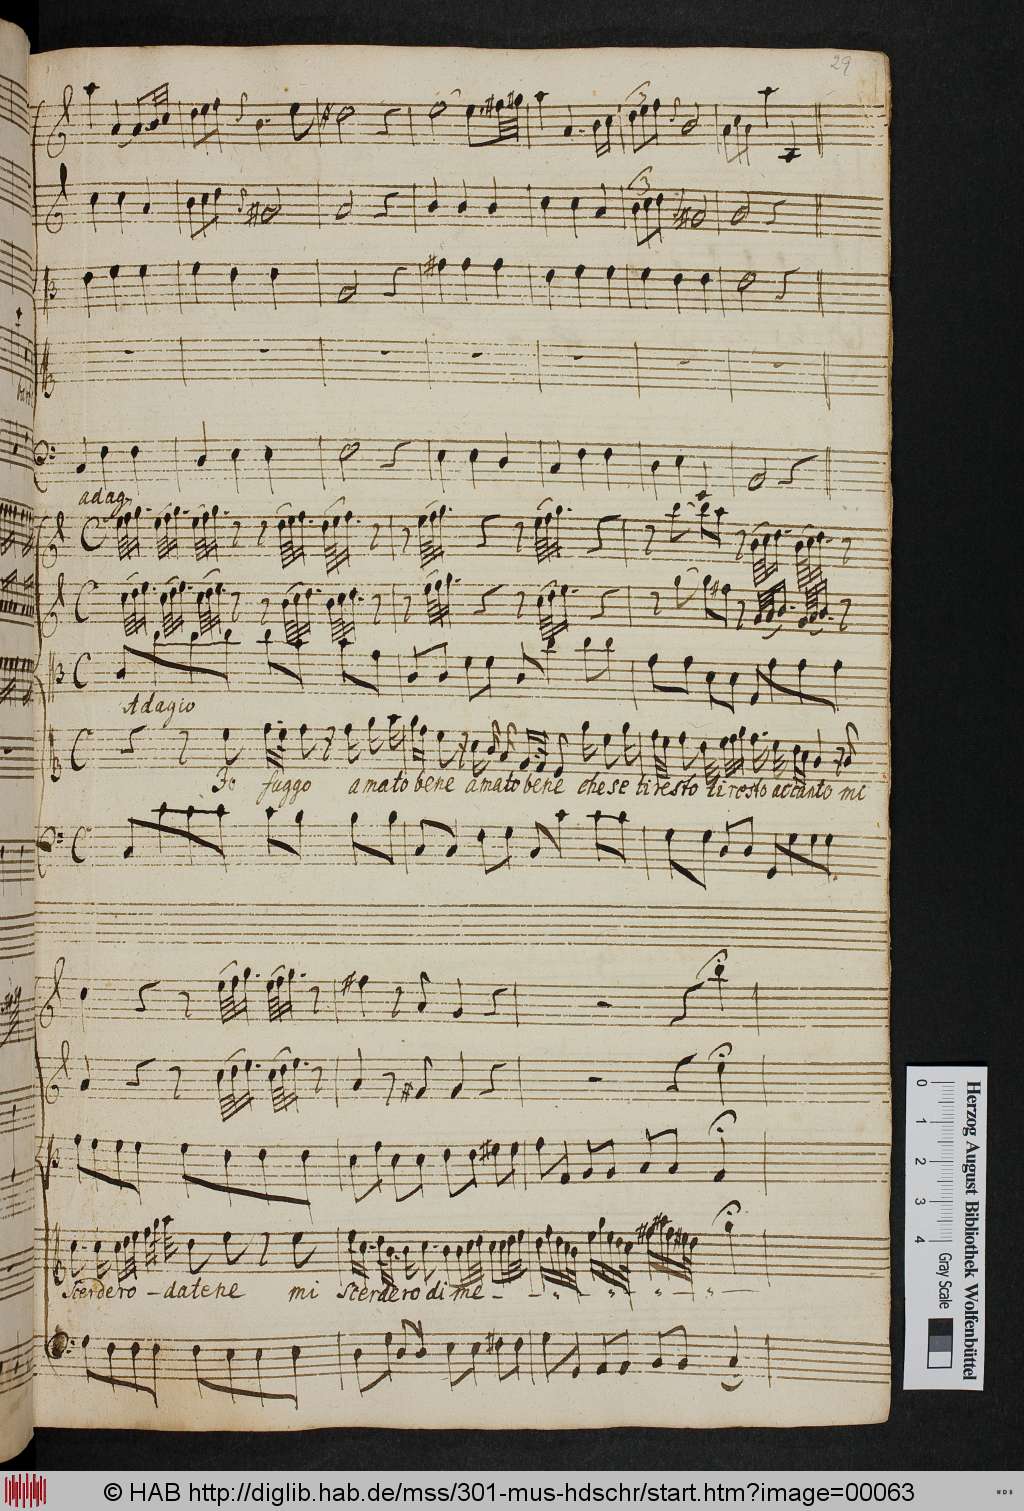 29
adag
Adagio
Io fuggo amato bene amato bene che se ti resto ti resto accanto mi
scerdero - da te ne mi scerdero di me - - " - " - " - " -
Herzog August Bibliothek Wolfenbüttel
0 1 2 3 4
Gray Scale
© HAB http://diglib.hab.de/mss/301-mus-hdschr/start.htm?image=00063